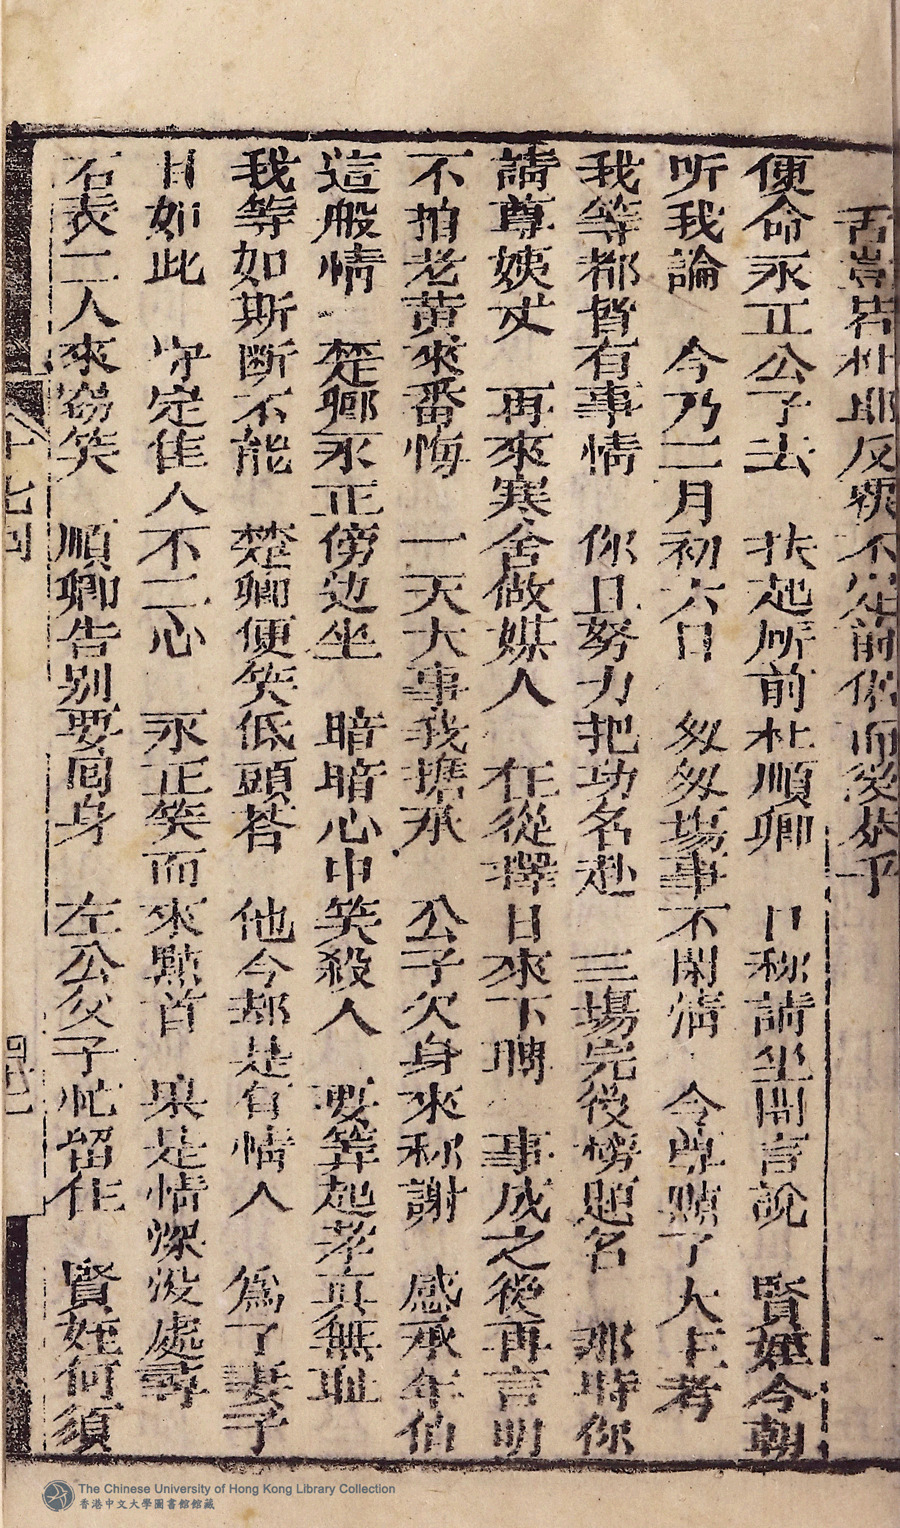 舌豈若朴耶反親不定前倨而後恭乎
便命永正公子去　扶起所前杜順卿　口称請坐開言說　賢姪今朝
听我論　今乃二月初六日　匆匆塲事不閑情　今尊點了大主考
我等都督有事情　你且努力把功名赴　三塲完後榜題名　那時你
請尊姨丈　再來寒舍做媒人　在從擇日來下聘　事成之後再言明
不拍老黃來番悔　一天大事我擔承　公子欠身來称謝　感承年伯
這般情　楚卿永正傍边坐　暗暗心中笑殺人　要算起來真無耻
我等如斯断不能　楚卿便笑低頭荅　他今都是有情人　為了妻子
甘如此　守定佳人不二心　永正笑而來點首　果是情深没處尋
右表二人來窃笑　順卿告别要囘身　左公父子忙留住　賢姪何須
十七囘
The Chinese University of Hong Kong Library Collection
香港中文大學圖書館館藏